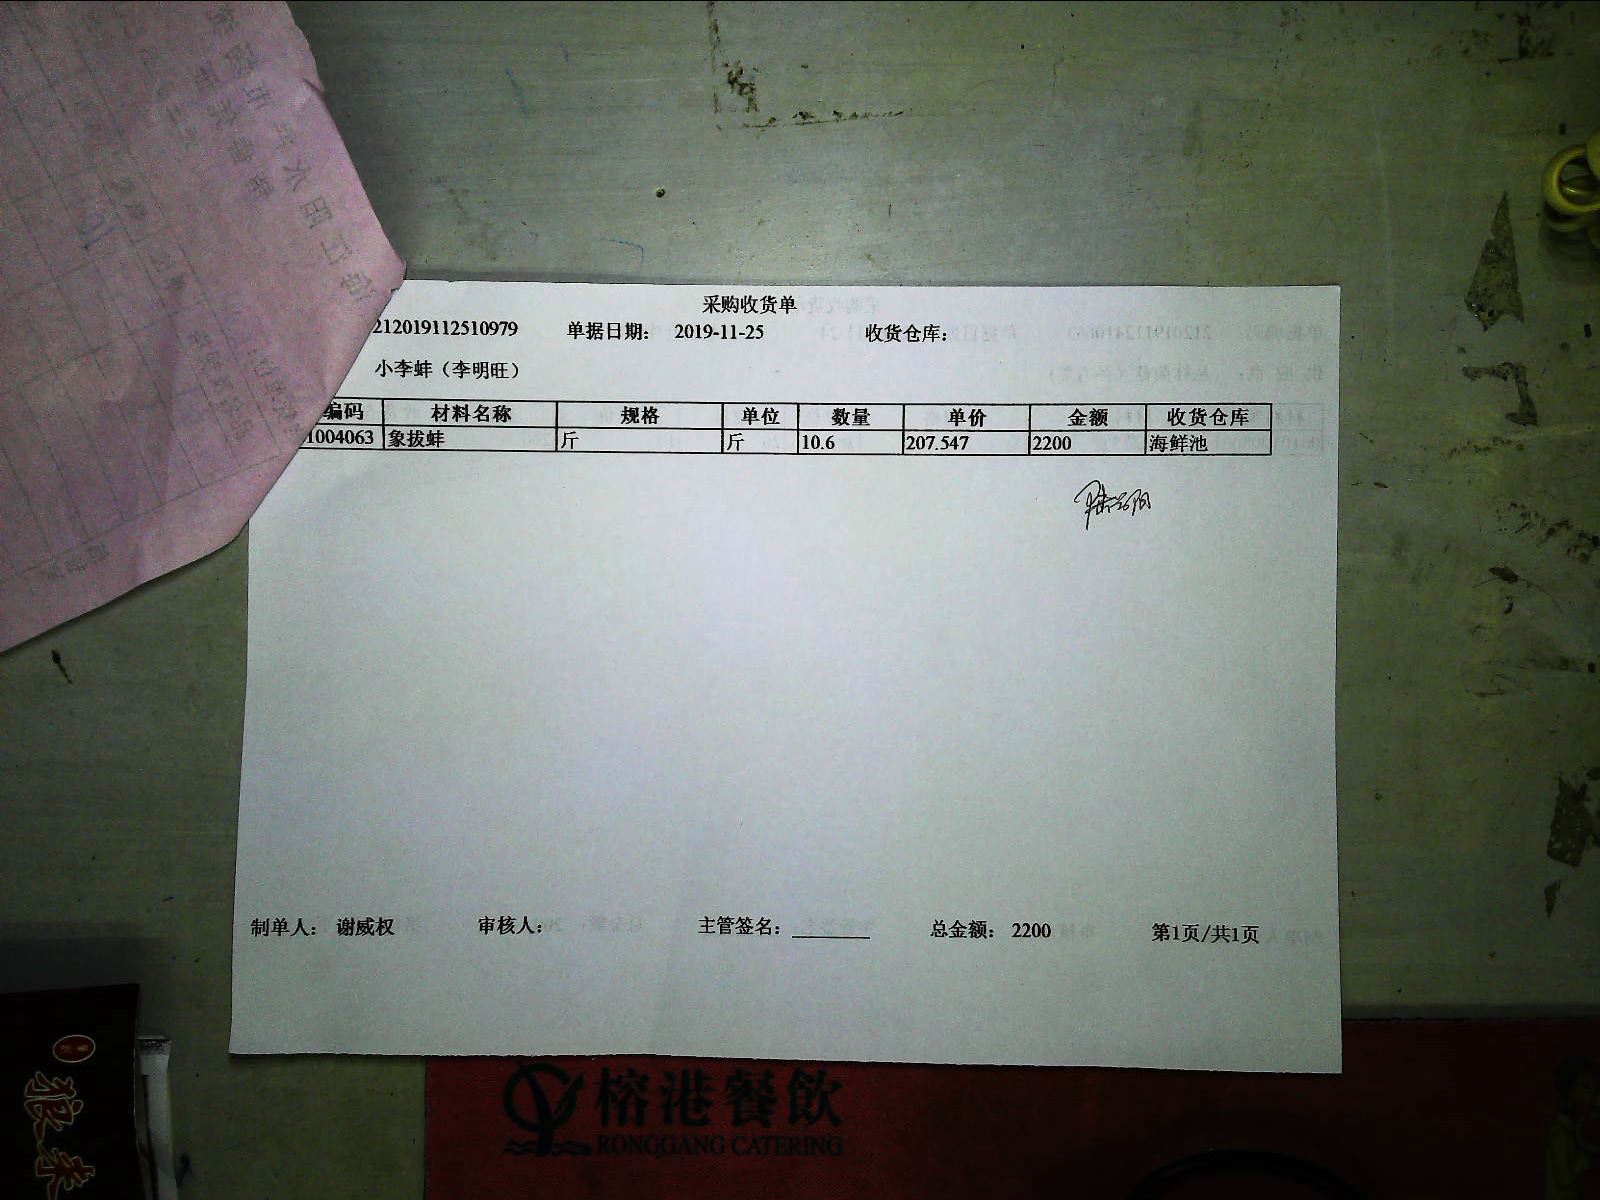 采购收货单
212019112510979 单据日期： 2019-11-25 收货仓库：
小李蚌（李明旺）
编码 材料名称 规格 单位 数量 单价 金额 收货仓库
1004063 象拔蚌 斤 斤 10.6 207.547 2200 海鲜池
制单人： 谢威权 审核人： 主管签名： 总金额： 2200 第1页/共1页
榕港餐飲
RONGGANG CATERING